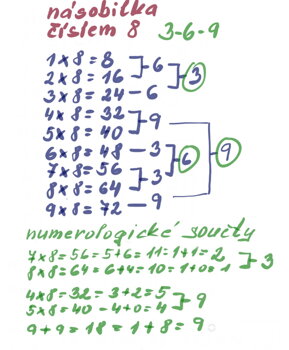 násobilka
číslem 8 3-6-9
1 x 8 = 8
2 x 8 = 16 6
3 x 8 = 24 - 6 3
4 x 8 = 32
5 x 8 = 40 9
6 x 8 = 48 - 3
7 x 8 = 56 6 9
8 x 8 = 64 3
9 x 8 = 72 - 9
numerologické součty
7 x 8 = 56 = 5+6 = 11 = 1+1 = 2
8 x 8 = 64 = 6+4 = 10 = 1+0 = 1 3
4 x 8 = 32 = 3+2 = 5
5 x 8 = 40 - 4+0 = 4 9
9 + 9 = 18 = 1 + 8 = 9